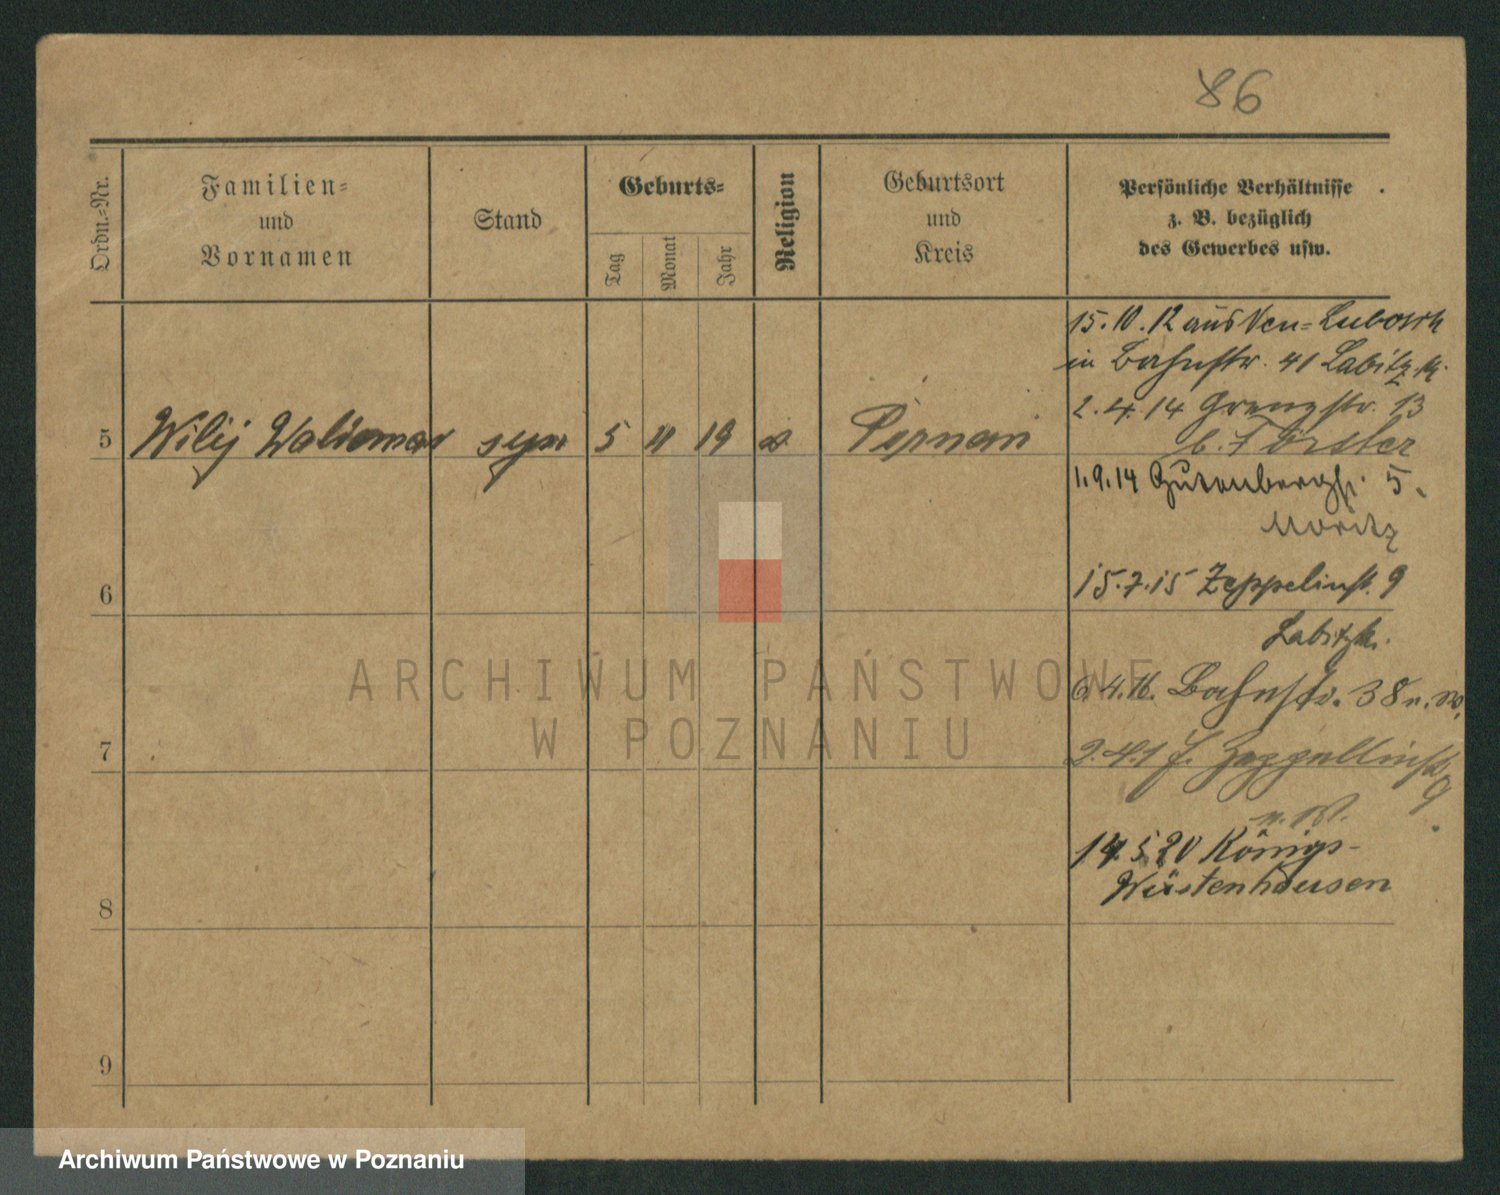 86
Ordn.-Nr.
Familien-
und
Vornamen
Stand
Geburts-
Tag
Monat
Jahr
Religion
Geburtsort
und
Kreis
Persönliche Verhältnisse
z. B. bezüglich
des Gewerbes usw.
15.10.12 aus Neu-Lubosch
in Bahnstr. 41 Labitzk.
2.4.14 Grenzstr. 13
b. Förster
5 Wilij Waldemar syn 5 11 19
1.9.14 Gutenbergstr. 5.
Moritz
15.7.15 Zeppelinst. 9
6
Labitzk.
6.4.16. Bahnstr. 38
7
Zeppellinstr.
9
14.5.20 Königs-
Wüstenhausen
8
9
ARCHIWUM PAŃSTWOWE
W POZNANIU
Archiwum Państwowe w Poznaniu